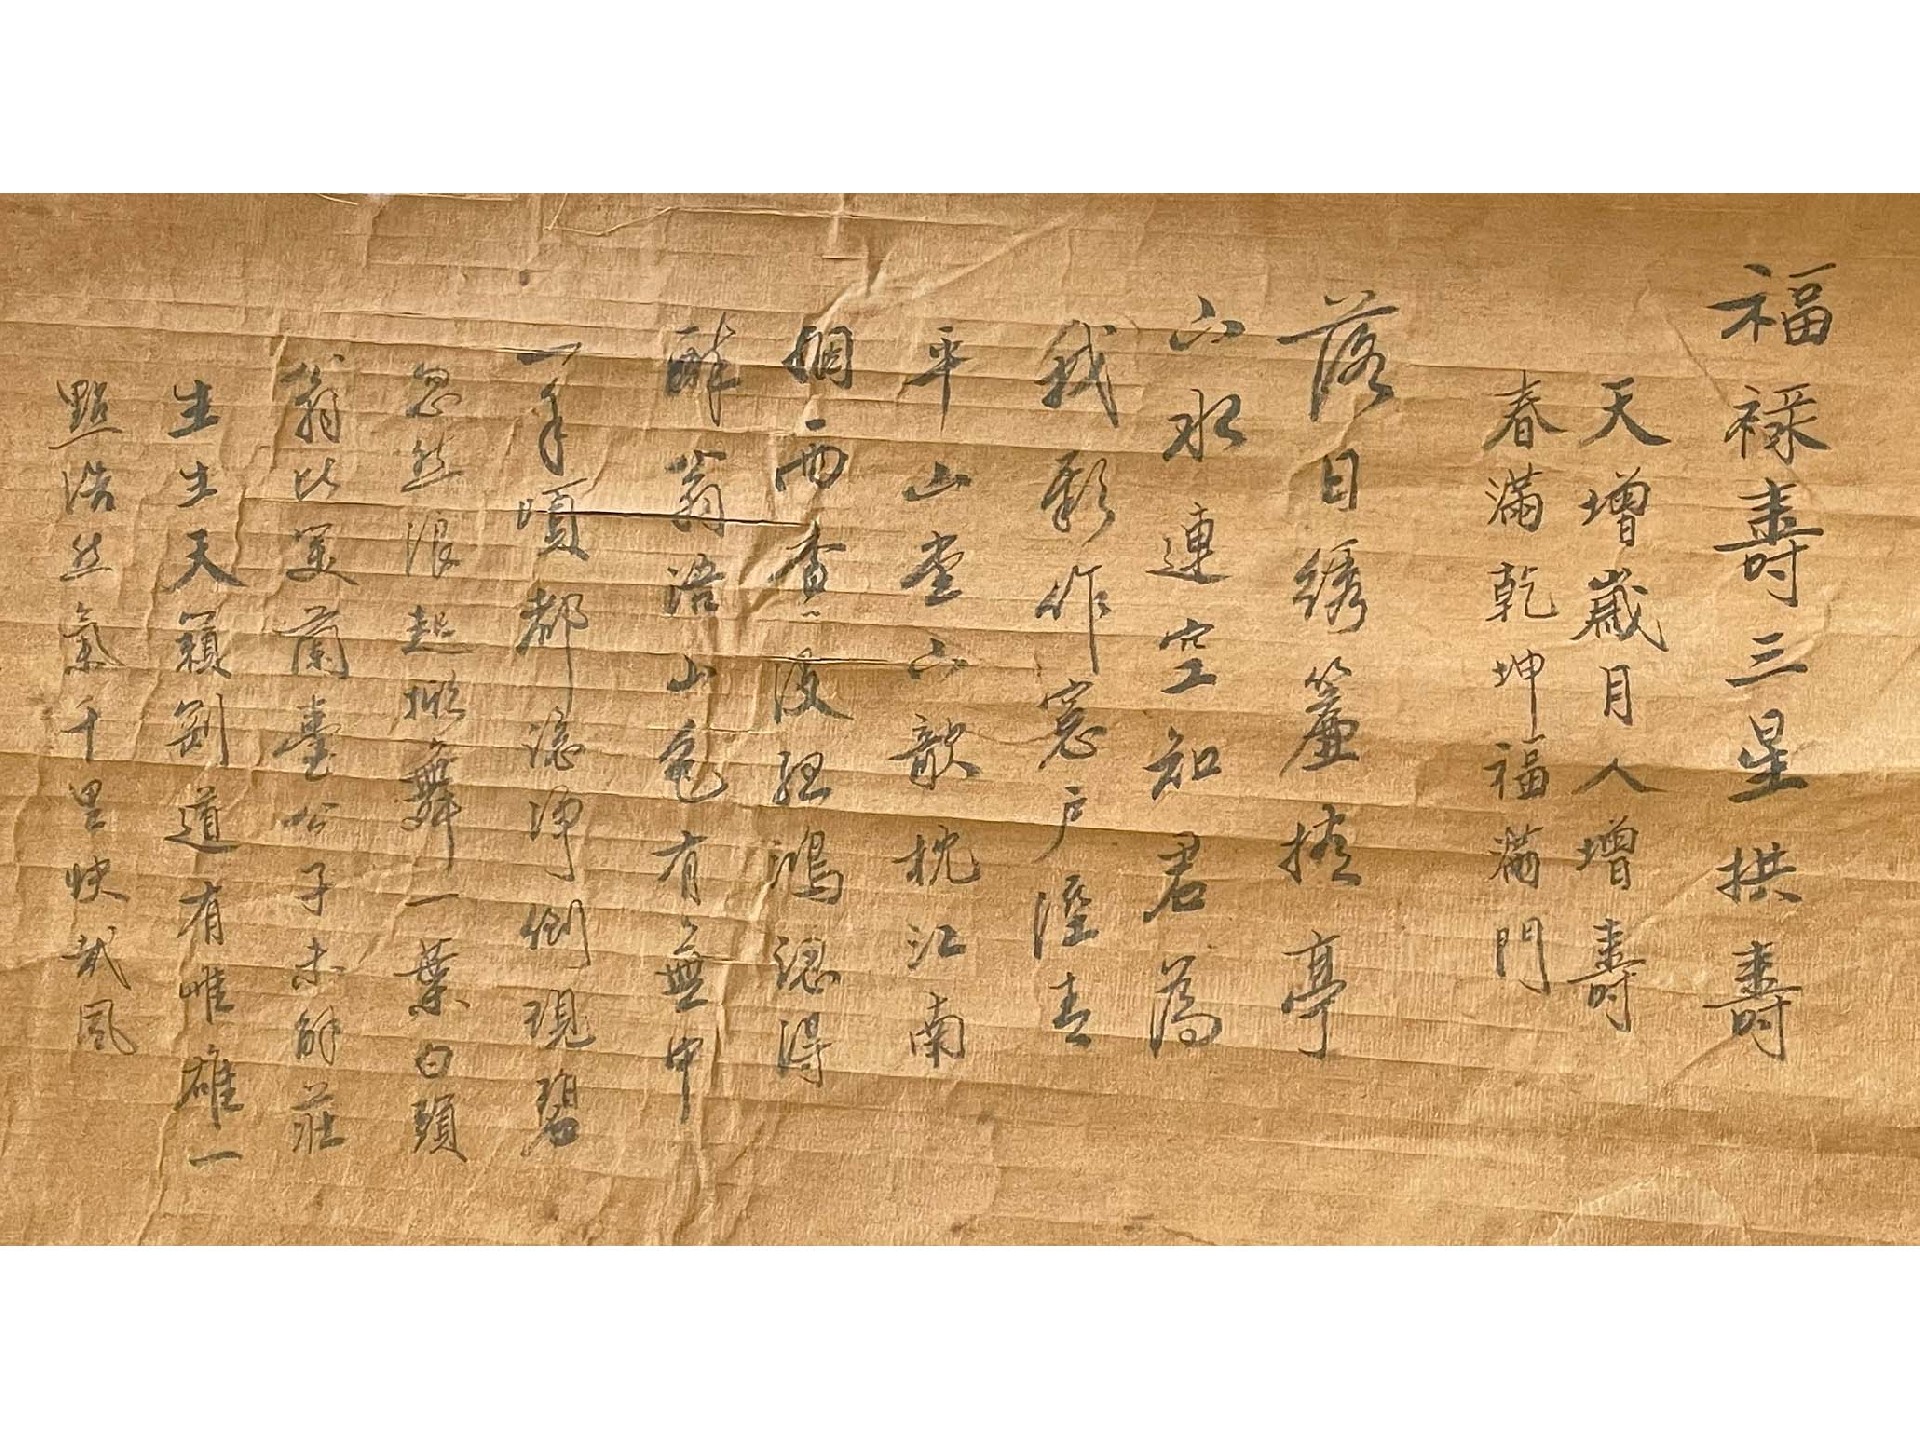 福祿壽三星拱壽
天增歲月人增壽
春滿乾坤福滿門
落日绣簾捲亭
下水連空知君為
我新作窓戶溼青
平山堂上欹枕江南
烟雨杳〻沒孤鴻認得
醉翁語山色有無中
一千頃都淨倒現碧
忽然浪起掀舞一葉白頭
翁比笑蘭臺公子未解莊
生生天籟剛道有唯雄一
點浩然氣千里快哉風